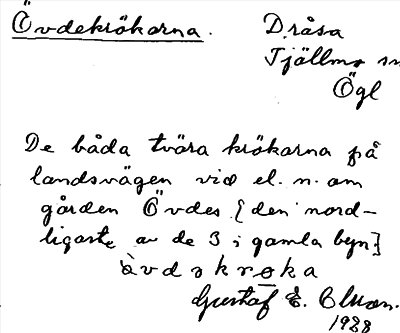 Övdekrökarna.
Dråsa
Tjällmo sn
Ögl
De båda tvära krökarna på
landsvägen vid el. n. om
gården Övdes [den nord-
ligaste av de 3 i gamla byn]
ə̀vdəkrøka
Gustaf E. Olsson.
1928